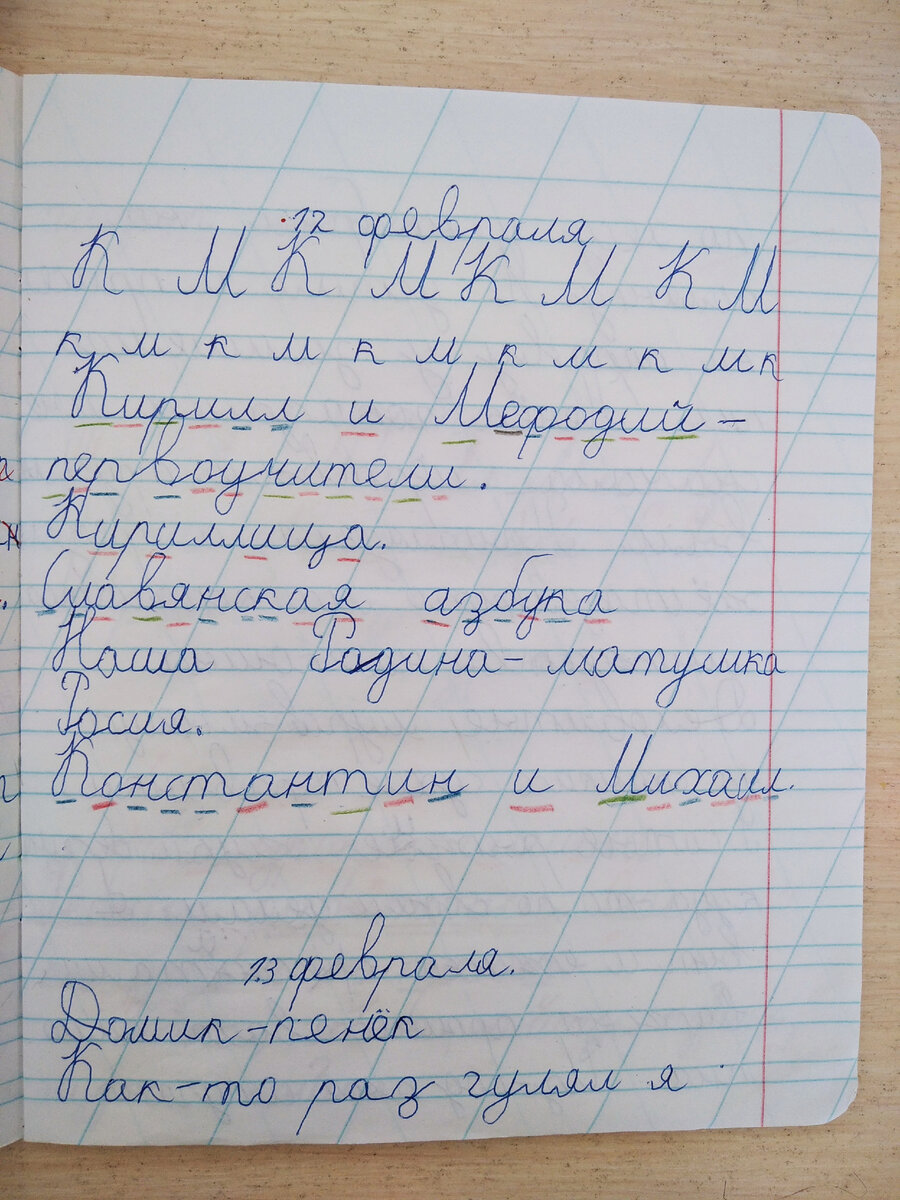 12 февраля
К М К М К М К М
к м к м к м к м к м к
Кирилл и Мефодий -
первоучители.
Кириллица.
Славянская азбука
Наша Родина - матушка
Росия.
Константин и Михаил.
13 февраля.
Домик - пенёк
Как-то раз гулял я